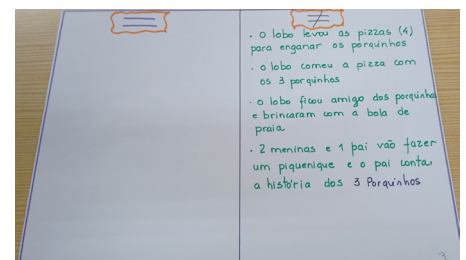 · O lobo levou as pizzas (4)
para enganar os porquinhos
· O lobo comeu a pizza com
os 3 porquinhos
· O lobo ficou amigo dos porquinhos
e brincaram com a bola de
praia
· 2 meninas e 1 pai vão fazer
um piquenique e o pai conta
a história dos 3 Porquinhos
3